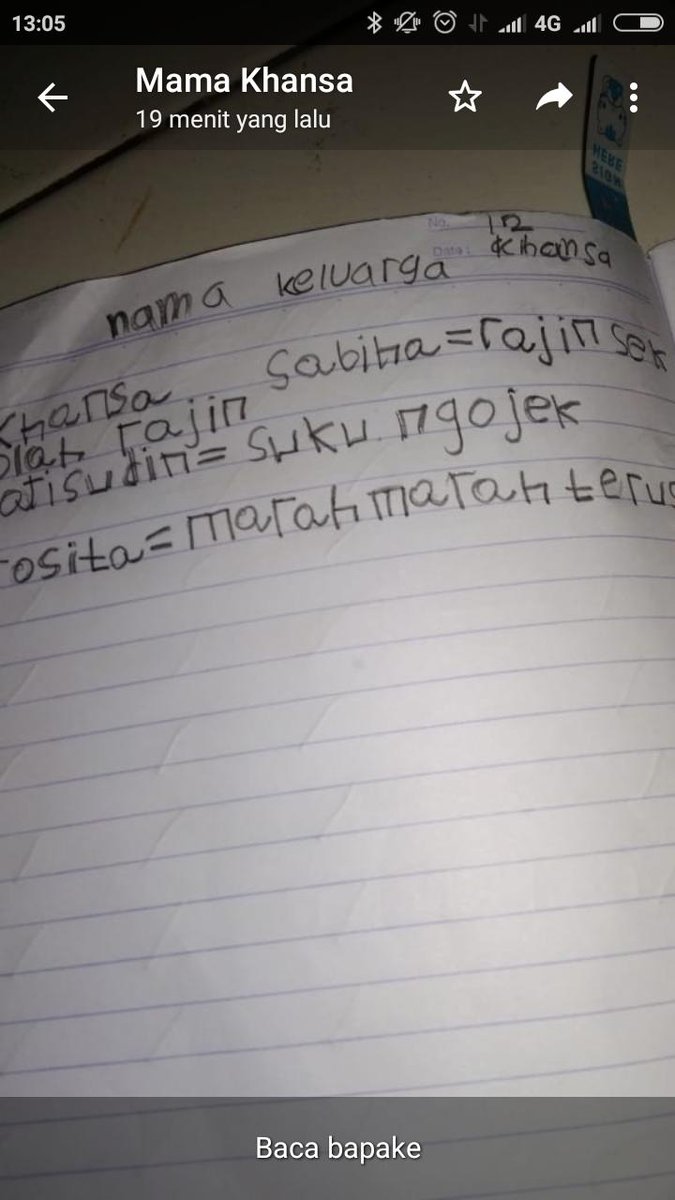 13:05
4G
Mama Khansa
19 menit yang lalu
HERE
SIGN
No. 12
Date: Khansa
nama keluarga
Khansa Sabina=rajin sek
olah rajin
atisudin= suku ngojek
rosita=marah marah terus
Baca bapake